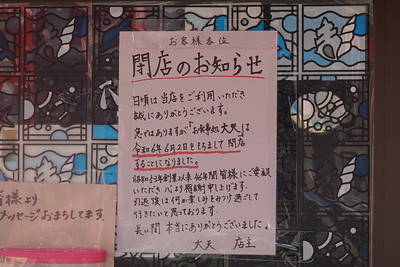 お客様各位
閉店のお知らせ
日頃は当店をご利用いただき
誠にありがとうございます。
急ではありますが、お食事処 大天は
令和6年6月2日をもちまして閉店
することになりました。
昭和53年創業以来46年間皆様にご愛顧
いただき 心より感謝申し上げます。
引退後は何か楽しみをみつけ過ごして
行きたいと思っております。
長い間 本当にありがとうございました。
大天 店主
皆様より
メッセージおまちしてます